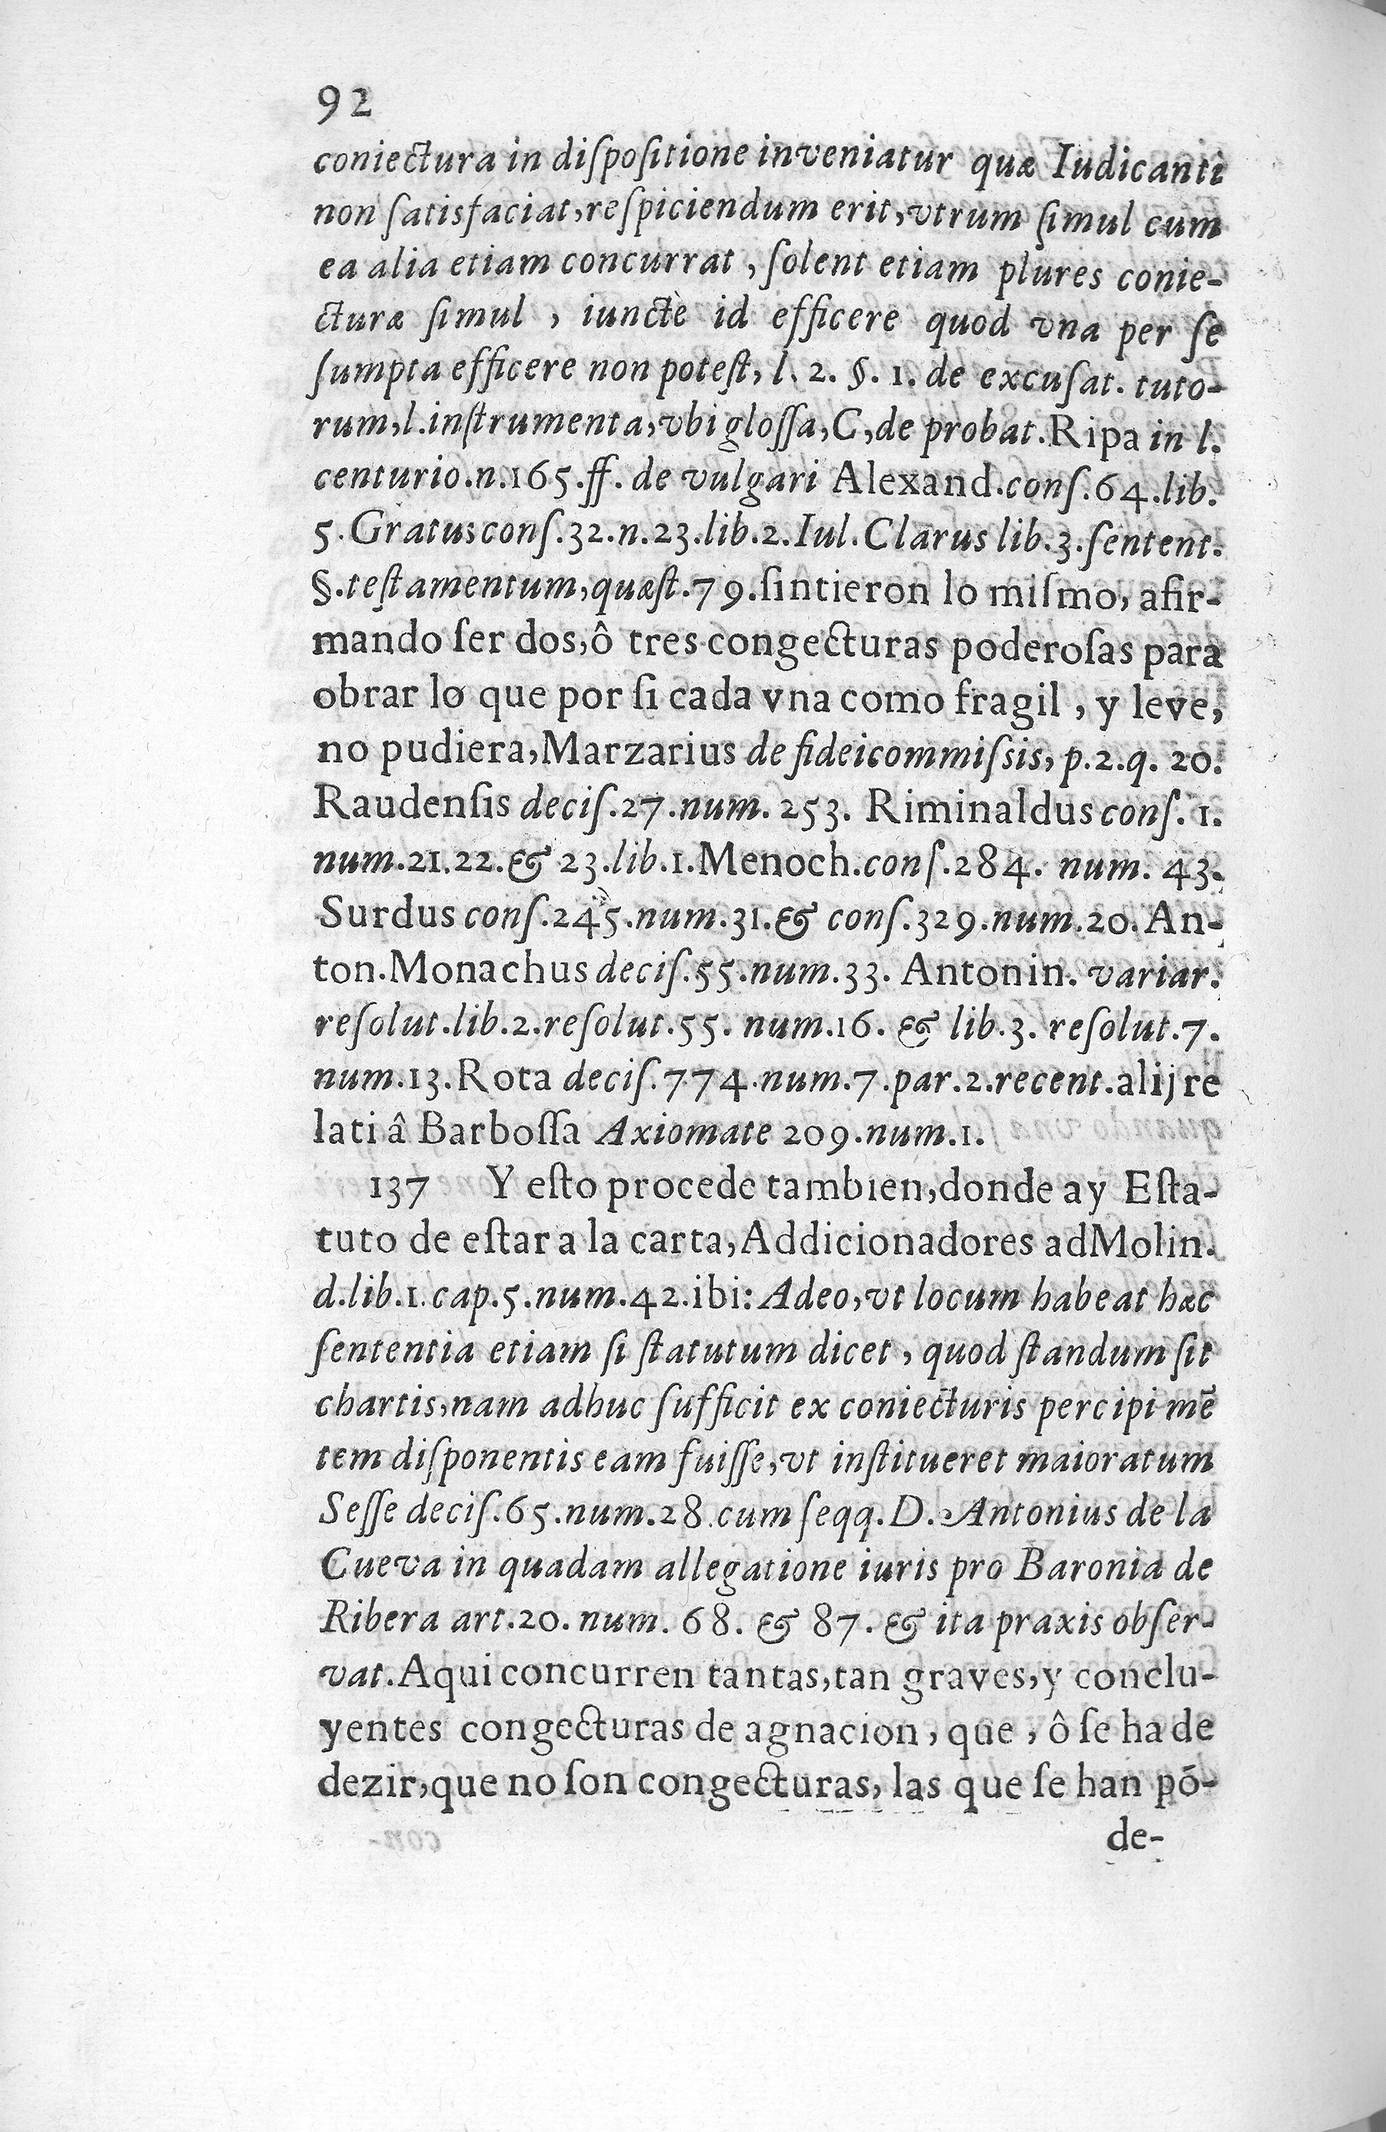 92
coniectura in dispositione inveniatur quæ Iudicanti
non satisfaciat, respiciendum erit, vtrum simul cum
ea alia etiam concurrat, solent etiam plures conie-
cturæ simul, iunctè id efficere quod vna per se
sumpta efficere non potest, l. 2. §. 1. de excusat. tuto-
rum, l. instrumenta, vbi glossa, C, de probat. Ripa in l.
centurio. n. 165. ff. de vulgari Alexand. cons. 64. lib.
5. Gratus cons. 32. n. 23. lib. 2. Iul. Clarus lib. 3. sentent.
§. testamentum, quæst. 79. sintieron lo mismo, afir-
mando ser dos, ô tres congecturas poderosas para
obrar lo que por si cada vna como fragil, y leve,
no pudiera, Marzarius de fideicommissis, p. 2. q. 20.
Raudensis decis. 27. num. 253. Riminaldus cons. 1.
num. 21. 22. & 23. lib. 1. Menoch. cons. 284. num. 43.
Surdus cons. 245. num. 31. & cons. 329. num. 20. An-
ton. Monachus decis. 55. num. 33. Antonin. variar.
resolut. lib. 2. resolut. 55. num. 16. & lib. 3. resolut. 7.
num. 13. Rota decis. 774. num. 7. par. 2. recent. alij re
lati â Barbossa Axiomate 209. num. 1.
137 Y esto procede tambien, donde ay Esta-
tuto de estar a la carta, Addicionadores ad Molin.
d. lib. 1. cap. 5. num. 42. ibi: Adeo, vt locum habeat hæc
sententia etiam si statutum dicet, quod standum sit
chartis, nam adhuc sufficit ex coniecturis percipi mē
tem disponentis eam fuisse, vt institueret maioratum
Sesse decis. 65. num. 28. cum seqq. D. Antonius de la
Cueva in quadam allegatione iuris pro Baronia de
Ribera art. 20. num. 68. & 87. & ita praxis obser-
vat. Aqui concurren tantas, tan graves, y conclu-
yentes congecturas de agnacion, que, ô se ha de
dezir, que no son congecturas, las que se han pō-
de-